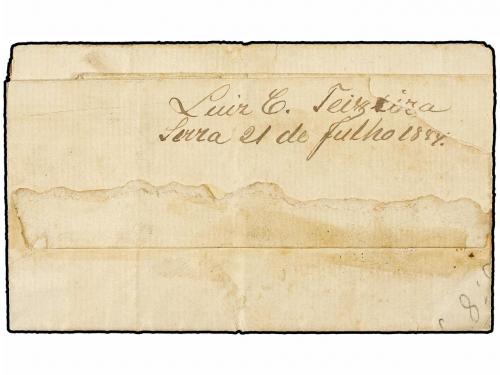 Luiz C. Teixeira
Serra 21 de Julho 1887.
8: